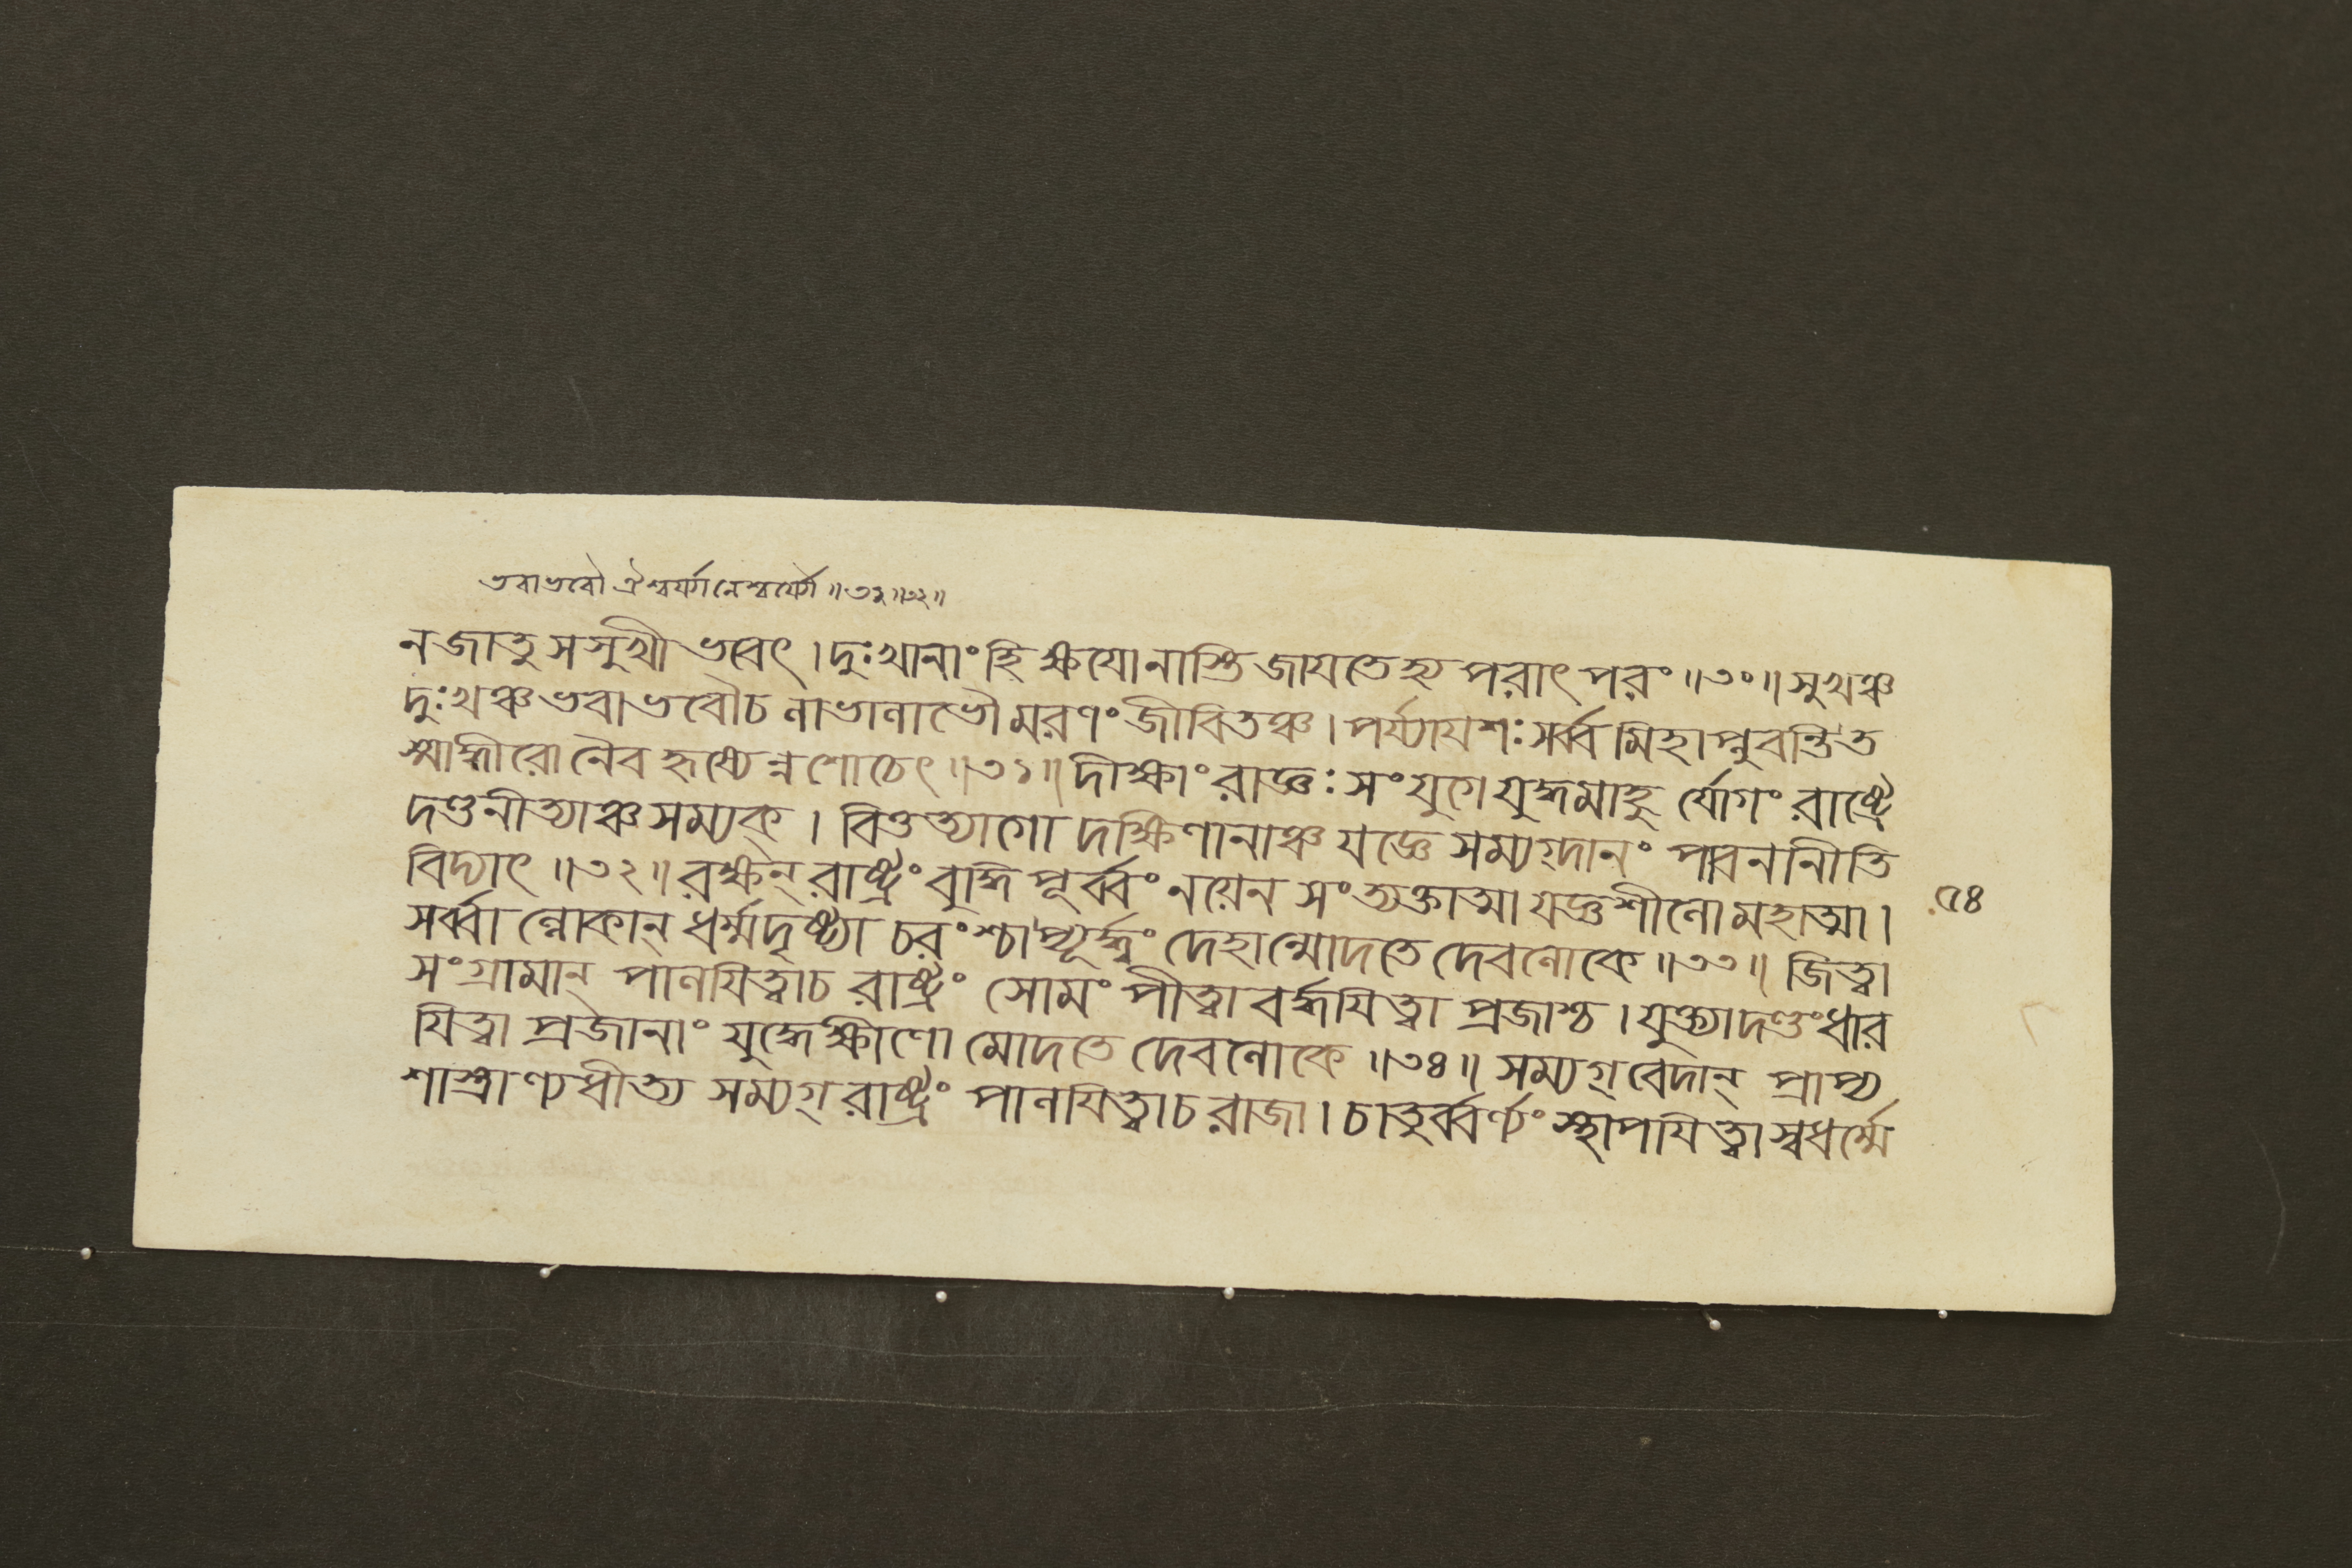 ভবাভবৌ ঐশ্বর্য্যানৈশ্বর্য্যৌ ॥ ৩১ ॥ ৩২ ॥
ন জাতু স সুখী ভবেৎ । দুঃখানাং হি ক্ষযো নাস্তি জাযতে হ্য পরাৎ পরং ॥ ৩০ ॥ সুখঞ্চ
দুঃখঞ্চ ভবাভবৌ চ লাভালাভৌ মরণং জীবিতঞ্চ । পর্য্যাযশঃ সর্ব্বমিহাপ্নুবন্তি ত
স্মাদ্ধীরো নৈব হৃষ্যেন্ন শোচেৎ ॥ ৩১ ॥ দীক্ষাং রাজ্ঞঃ সংযুগে যুদ্ধমাহু র্যোগং রাষ্ট্রে
দণ্ডনীত্যাঞ্চ সম্যক্ । বিত্তত্যাগো দক্ষিণানাঞ্চ যজ্ঞে সম্যগ্দানং পাবনানীতি
বিদ্যাৎ ॥ ৩২ ॥ রক্ষন্ রাষ্ট্রং বুদ্ধিপূর্ব্বং নয়েন সংত্যক্তাত্মা যজ্ঞশীলো মহাত্মা ।
সর্ব্বাল্লোকান্ ধর্ম্মদৃষ্ট্যা চরংশ্চাপ্যূর্দ্ধ্বং দেহান্মোদতে দেবলোকে ॥ ৩৩ ॥ জিত্বা
সংগ্রামান্ পালযিত্বা চ রাষ্ট্রং সোমং পীত্বা বর্দ্ধযিত্বা প্রজাশ্চ । যুক্ত্যা দণ্ডং ধার
যিত্বা প্রজানাং যুদ্ধে ক্ষীণো মোদতে দেবলোকে ॥ ৩৪ ॥ সম্যগ্ বেদান্ প্রাপ্য
শাস্ত্রাণ্যধীত্য সম্যগ্ রাষ্ট্রং পালযিত্বা চ রাজা । চাতুর্ব্বর্ণ্যং স্থাপযিত্বা স্বধর্ম্মে
৫৪